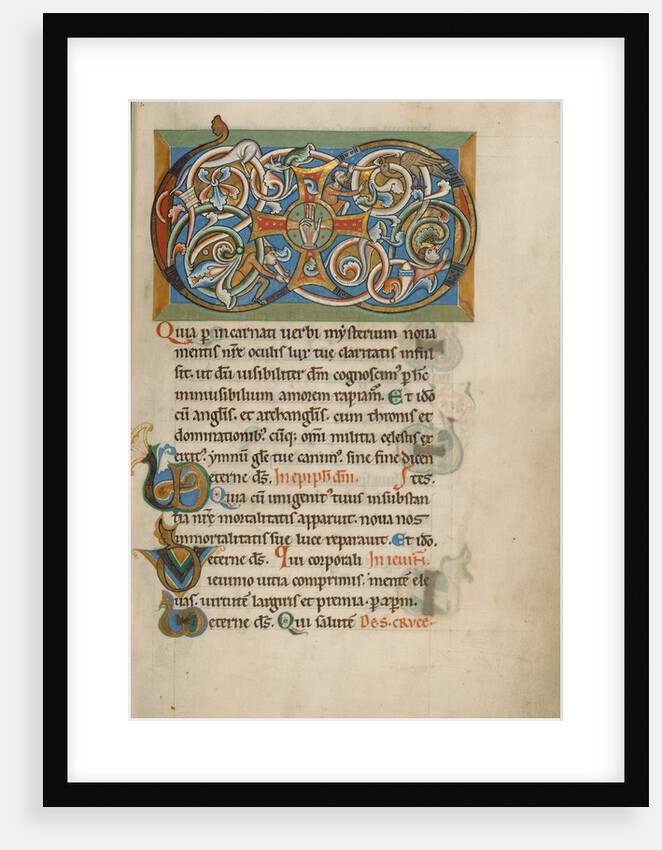 Quia p incarnati uerbi mysterium noua
mentis nrē oculis lux tuę claritatis inful
sit. ut dūi uisibiliter dm̄ cognoscim᷒ p hc̄
inuisibilium amorem rapiam᷒. Et ido
cū anglis̄. et archanglis̄. cum thronis et
dominationib᷒. cūq; om̄i militia celestis ex
ercit᷒. ymnū glę tuę canim᷒. sine fine dicen
tes.
Veterne ds̄. In epiph dn̄i.
Quia cū unigenit᷒ tuus in substan
tia nrē mortalitatis apparuit. noua nos
immortalitatis suę luce reparauit. Et ido.
Veterne ds̄. Qui corporali In ieiun̄.
ieiunio uitia comprimis. mentē ele
uas. uirtutē largiris et premia. p xp̄m.
Veterne ds̄. Qui salutē De s. cruce.